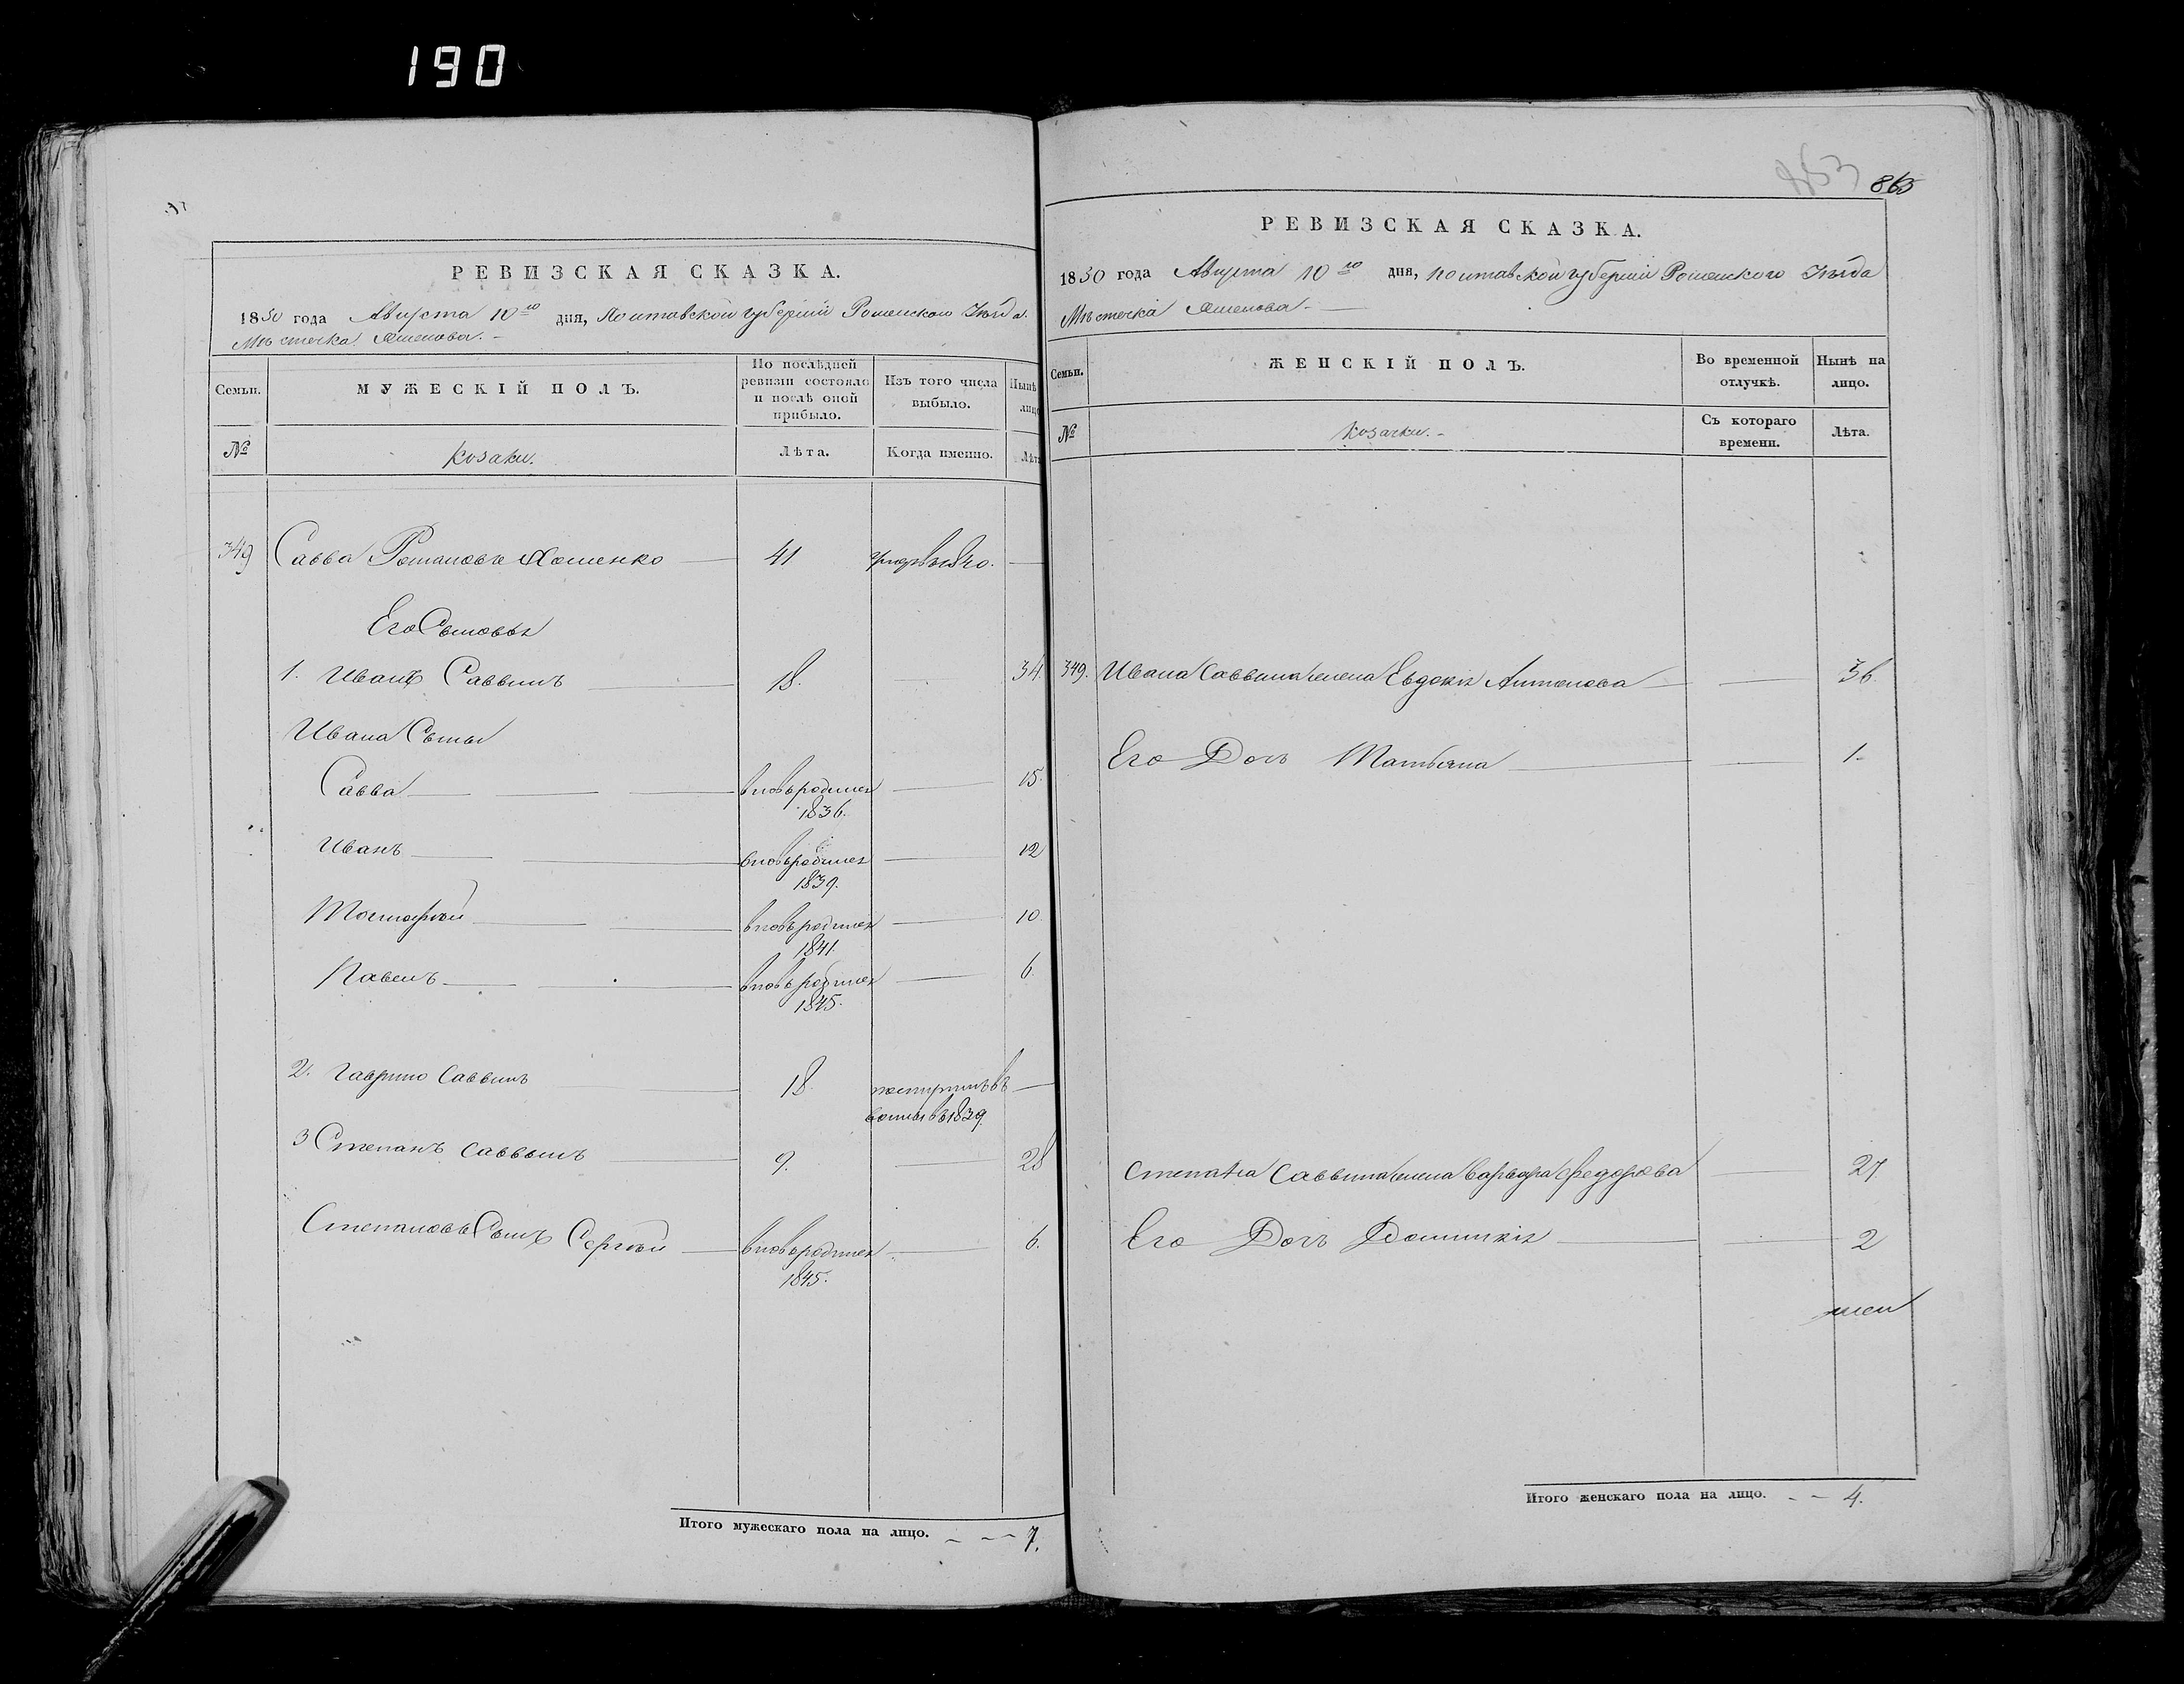 190
РЕВИЗСКАЯ СКАЗКА.
1850 года Августа 10го дня, Полтавской губернии Роменского Уезда
Местечка Смелова. -
Семьи.
МУЖЕСКІЙ ПОЛЪ.
По послѣдней ревизіи состояло и послѣ оной прибыло.
Изъ того числа выбыло.
Нынѣ лицо
№
козаки.
Лѣта.
Когда именно.
Лѣта
349 Савва Романовъ 41
Его Сыновья
1. Иванъ Саввинъ 18. 34.
Ивана Сыны
Савва вновьродился 15.
1836.
Иванъ вновьродился 12
1839.
Тимофей вновьродился 10
1841.
Павелъ вновьродился 6.
1845.
2. Гаврило Саввинъ 18.
1839.
3 Степанъ Саввинъ 9. 28
Степановъ Сынъ Сергей вновьродился 6.
1845.
Итого мужескаго пола на лицо. - - - 7.
863
РЕВИЗСКАЯ СКАЗКА.
1850 года Августа 10го дня, Полтавской губернии Роменского Уезда
Местечка Смелова. -
Семьи.
ЖЕНСКІЙ ПОЛЪ.
Во временной отлучкѣ.
Нынѣ на лицо.
№
козачки. -
Съ котораго времени.
Лѣта.
349. Ивана Саввина жена Евдокия Антонова 36.
Его Дочь Татьяна 1.
Степана Саввина жена Варвара Федорова 27
Его Дочь Домникия 2
Итого женскаго пола на лицо. - - 4.